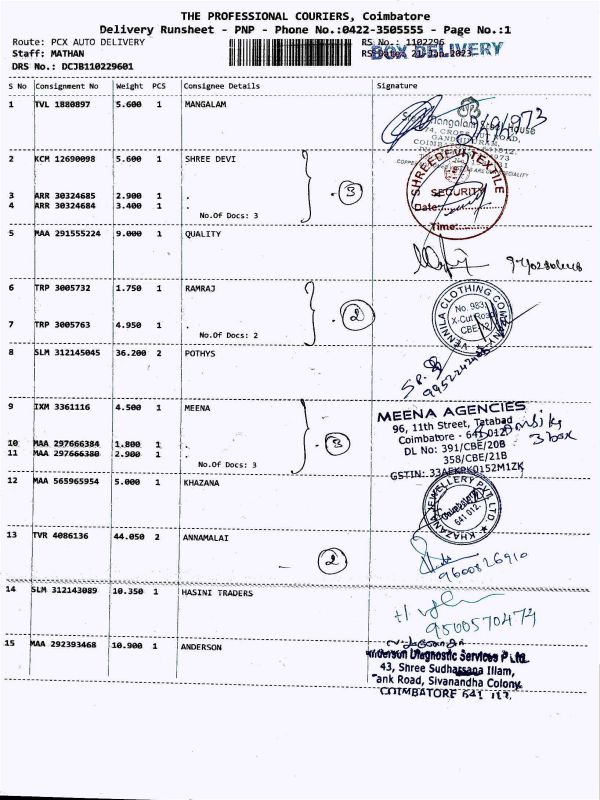 THE PROFESSIONAL COURIERS, Coimbatore
Delivery Runsheet - PNP - Phone No.:0422-3505555 - Page No.:1
Route: PCX AUTO DELIVERY
RS No.: 1102296
Staff: MATHAN
RS Date: 21-Jan-2023
BOX DELIVERY
DRS No.: DCJB110229601
S No Consignment No Weight PCS Consignee Details Signature
1 TVL 1880897 5.600 1 MANGALAM
CROSS CUT ROAD,
GANDHIPURAM,
2 KCM 12690098 5.600 1 SHREE DEVI
SHREEDEVI TEXTILE
SECURITY
Date:
Time:
3 ARR 30324685 2.900 1 .
4 ARR 30324684 3.400 1 .
No.Of Docs: 3
3
5 MAA 291555224 9.000 1 QUALITY
6 TRP 3005732 1.750 1 RAMRAJ
VENNILA CLOTHING COMPANY
No. 983,
X-Cut Road
CBE-12
7 TRP 3005763 4.950 1 .
No.Of Docs: 2
2
8 SLM 312145045 36.200 2 POTHYS
S.P.
9 IXM 3361116 4.500 1 MEENA
MEENA AGENCIES
96, 11th Street, Tatabad
Coimbatore - 641 012
DL No: 391/CBE/20B
358/CBE/21B
3 box
10 MAA 297666384 1.800 1 .
11 MAA 297666380 2.900 1 .
No.Of Docs: 3
3
GSTIN: 33AEKPK0152M1ZK
12 MAA 565965954 5.000 1 KHAZANA
KHAZANA JEWELLERY PVT. LTD.
Coimbatore
641 012.
13 TVR 4086136 44.050 2 ANNAMALAI
2
9600826910
14 SLM 312143089 10.350 1 HASINI TRADERS
9500570474
15 MAA 292393468 10.900 1 ANDERSON
Anderson Diagnostic Services P Ltd
43, Shree Sudharsana Illam,
Tank Road, Sivanandha Colony
COIMBATORE 641 012.